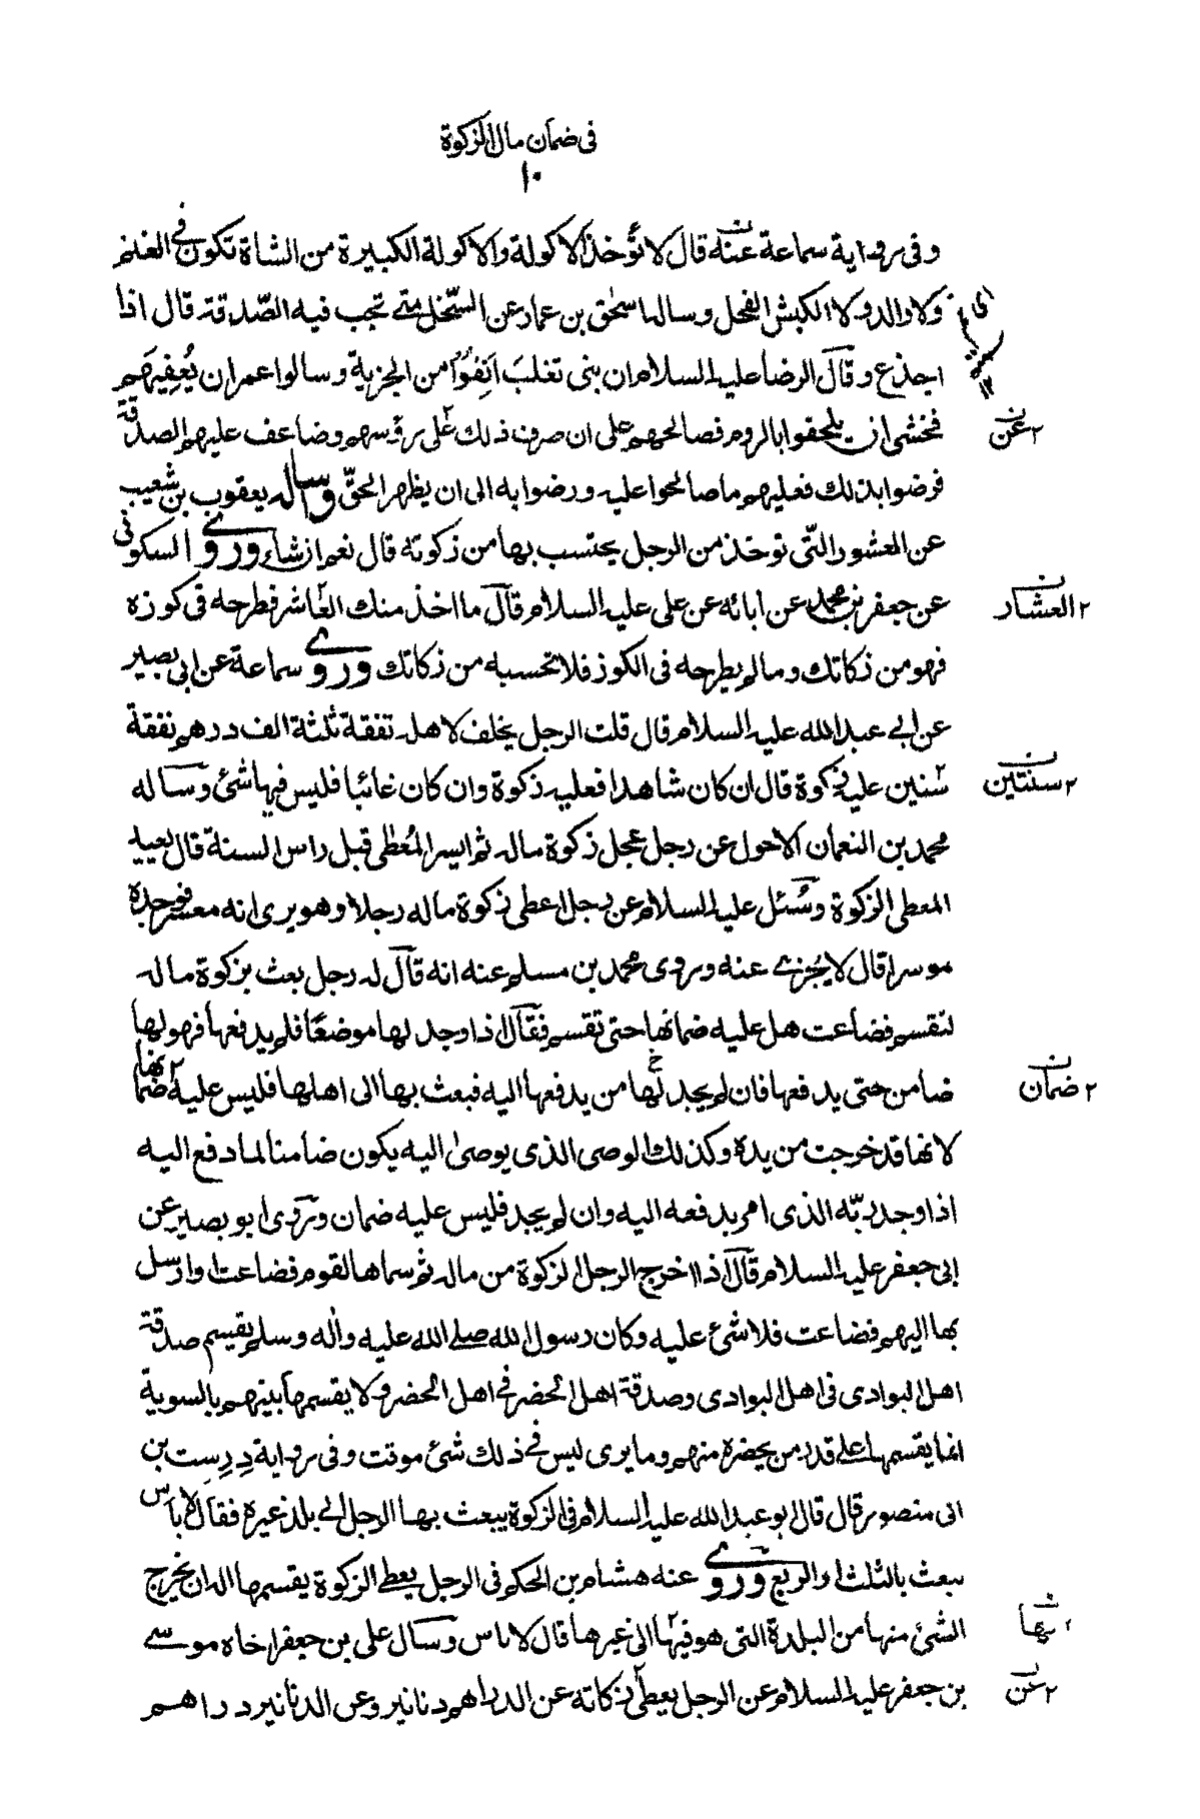 فى ضمان مال الزكوة
١٠
وفى رواية سماعة عنه قال لا تؤخذ الاكولة والاكولة الكبيرة من الشاة تكون فى الغنم
ولا والد ولا الكبش الفحل وساله اسحق بن عمار عن السخل متى تجب فيه الصدقة قال اذا
اجذع وقال الرضا عليه السلام ان بنى تغلب انفوا من الجزية وسالوا عمران يعفيهم
فخشى ان يلحقوا بالروم فصالحهم على ان صرف ذلك على رؤسهم وضاعف عليهم الصدقة
٢ عن
فرضوا بذلك فعليهم ما صالحوا عليه ورضوا به الى ان يظهر الحق وساله يعقوب بن شعيب
عن العشور التى توخذ من الرجل يحتسب بها من زكوته قال نعم ان شاء وروى السكونى
عن جعفر بن محمد عن ابائه عن على عليه السلام قال ما اخذ منك العاشر فطرحه فى كوزه
٢ العشار
فهو من زكاتك وما لم يطرحه فى الكوز فلا تحسبه من زكاتك وروى سماعة عن ابى بصير
عن ابى عبد الله عليه السلام قال قلت الرجل يخلف لاهله نفقة ثلثة الف درهم نفقة
سنين عليه زكوة قال ان كان شاهدا فعليه زكوة وان كان غائبا فليس فيها شئ وساله
٢ سنتين
محمد بن النعمان الاحول عن رجل عجل زكوة ماله ثم ايسر المعطى قبل راس السنة قال يعيد
المعطى الزكوة وسئل عليه السلام عن رجل اعطى زكوة ماله رجلا وهو يرى انه معسر فوجده
موسرا قال لا يجزى عنه وروى محمد بن مسلم عنه انه قال له رجل بعث بزكوة ماله
لتقسم فضاعت هل عليه ضمانها حتى تقسم فقال اذا وجد لها موضعا فلم يدفعها فهو لها
ضامن حتى يدفعها فان لم يجد لها من يدفعها اليه فبعث بها الى اهلها فليس عليه ضمانها
٢ ضمان
لانها قد خرجت من يده وكذلك الوصى الذى يوصى اليه يكون ضامنا لما دفع اليه
اذا وجد ربه الذى امر بدفعه اليه وان لم يجد فليس عليه ضمان وروى ابو بصير عن
ابى جعفر عليه السلام قال اذا اخرج الرجل الزكوة من ماله ثم سماها لقوم فضاعت او ارسل
بها اليهم فضاعت فلا شئ عليه وكان رسول الله صلى الله عليه واله وسلم يقسم صدقة
اهل البوادى فى اهل البوادى وصدقة اهل الحضر فى اهل الحضر ولا يقسمها بينهم بالسوية
انما يقسمها على قدر من يحضره منهم وما يرى ليس فى ذلك شئ موقت وفى رواية درست بن
ابى منصور قال قال ابو عبد الله عليه السلام فى الزكوة يبعث بها الرجل الى بلد غيره فقال لا باس
يبعث بالثلث او الربع وروى عنه هشام بن الحكم فى الرجل يعطى الزكوة يقسمها اله ان يخرج
الشئ منها من البلدة التى هو فيها الى غيرها قال لا باس وسال على بن جعفر اخاه موسى
٢ بها
بن جعفر عليه السلام عن الرجل يعطى زكاته عن الدراهم دنانير وعن الدنانير دراهم
٢ عن